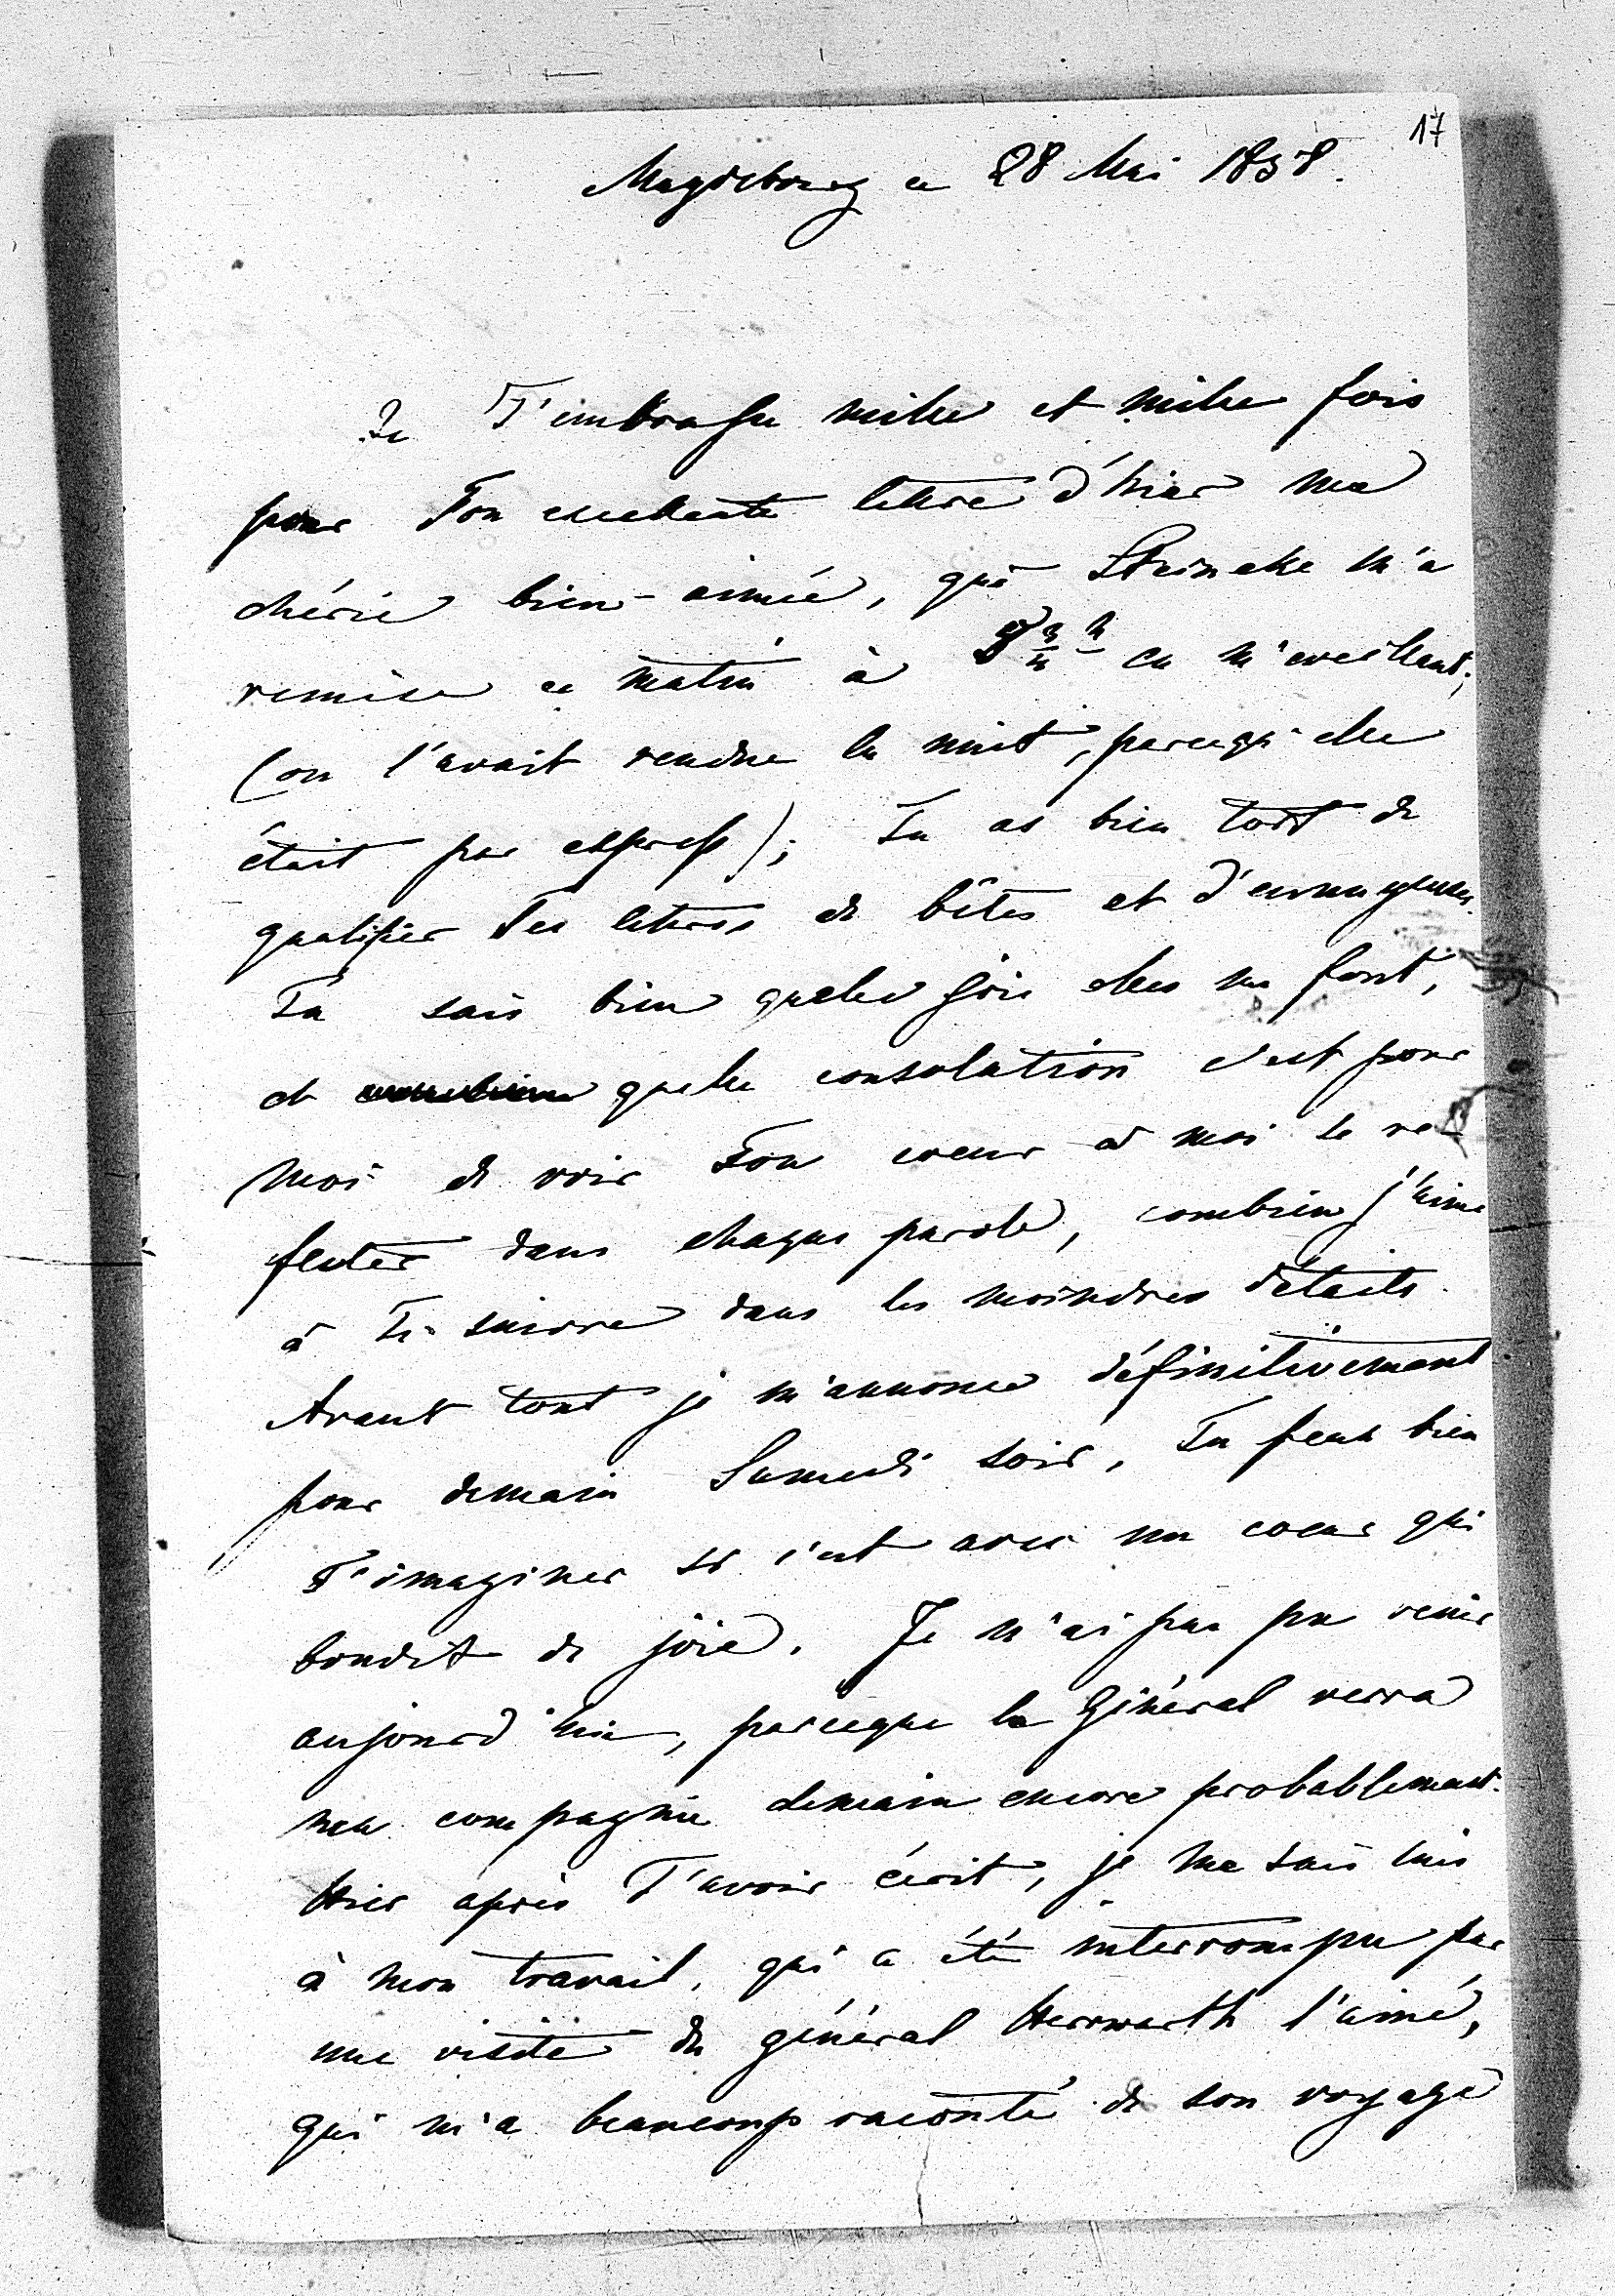 17
Magdebourg ce 28 Mai 1858.
Je T'embrasse mille et mille fois
pour Ton excellente lettre d'hier ma
chérie bien-aimée, que m'a
remise ce matin à en m'eveillant;
(on l'avait rendue la nuit, parcequ'elle
était par express); Tu as bien tort de
qualifier Tes lettres de bêtes et d'ennuyeuses.
Tu sais bien quelle joie elles me font,
et quelle consolation c'est pour
moi de voir Ton coeur à moi se re-
fleter dans chaque parole, combien j'aime
à Te suivre dans les moindres détails.
Avant tout je m'annonce définitivement
pour demain Samedi soir, Tu peux bien
T'imaginer si c'est avec un coeur qui
bondit de joie. Je n'ai pas pu venir
aujourd'hui, parceque le Général verra
ma compagnie demain encore probablement.
Hier après T'avoir écrit, je me suis mis
à mon travail, qui a été interrompu par
une visite du général Herrwarth l'ainé,
qui m'a beaucoup raconté de son voyage